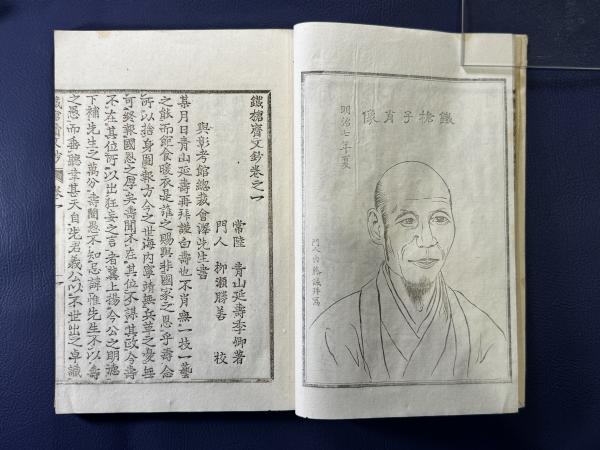 鐵槍子肖像
明治七年夏
鐵槍齋文鈔卷之一
常陸 青山延壽季卿著
門人 柳瀬勝善 校
與彰考館總裁會澤先生書
某月日青山延壽再拜謹白壽也不肖無一技一藝
之能而飽食暖衣是誰之賜與非國家之恩乎壽念
所以捨身圖報方今之世海內寧靖無兵革之憂無
可終報國恩之厚矣壽聞不在其位不謀其政今壽
不在其位何以出狂妄之言者冀上揚今公之明德
下補先生之萬分壽聞愚不知忌諱惟先生不以壽
之愚而垂聽幸甚夫自先君義公以不世出之卓識
鐵槍齋文鈔 卷一